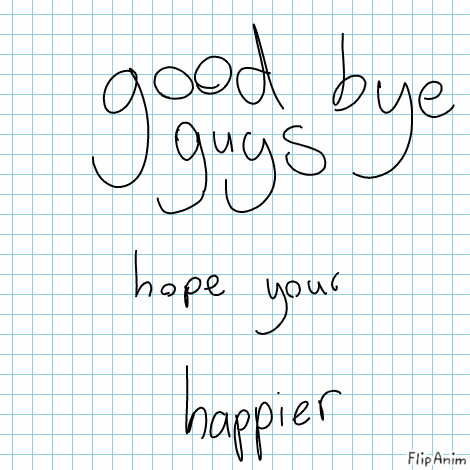 good bye
guys
hope your
happier
FlipAnim